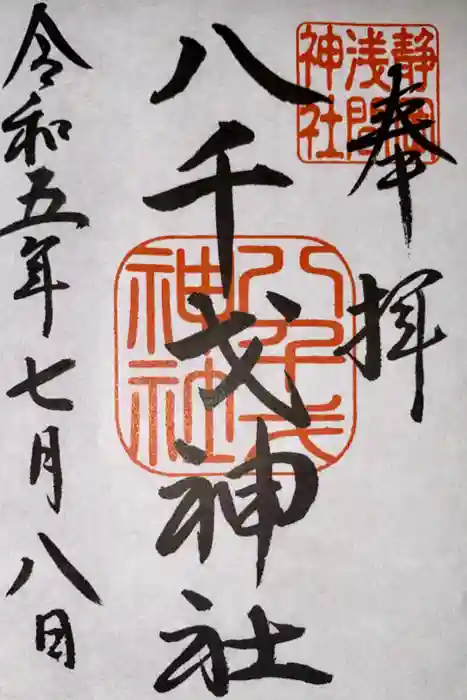 奉拝
静岡浅間神社
八千戈神社
八千戈神社
令和五年七月八日